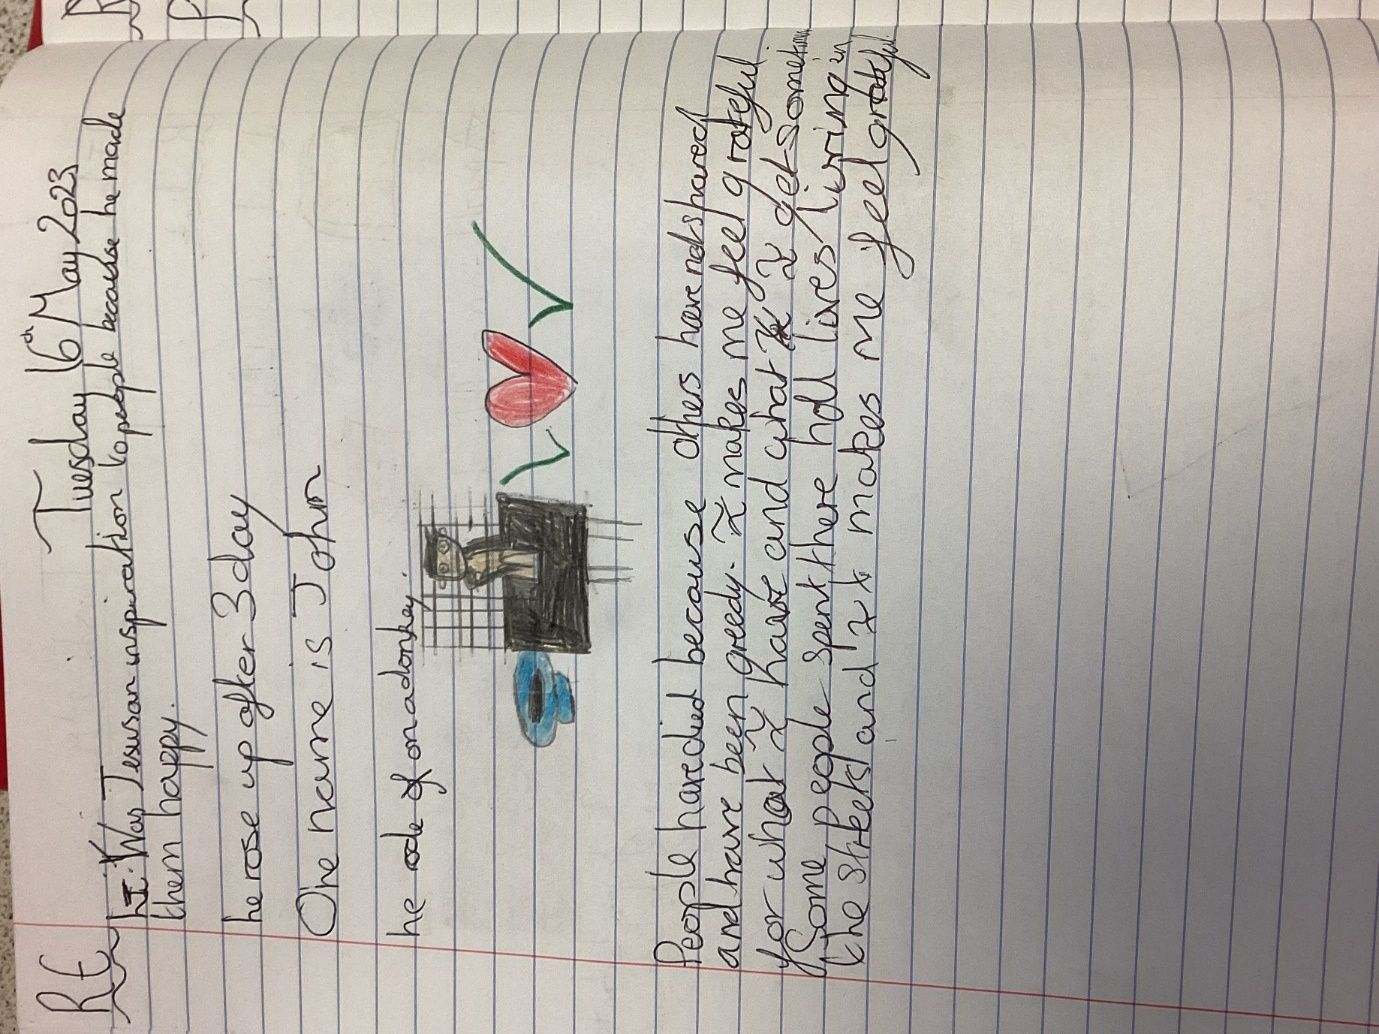 Re Tuesday 16th May 2023
L.I: Was Jesus an inspiration to people because he made
them happy.
he rose up after 3 day
One name is John
he rode of on a donkey.
People have died because others have not shared
and have been greedy. I makes me feel grateful
for what I have and what I get some
Some people spent there holl lives living in
the streets and It makes me feel grateful.